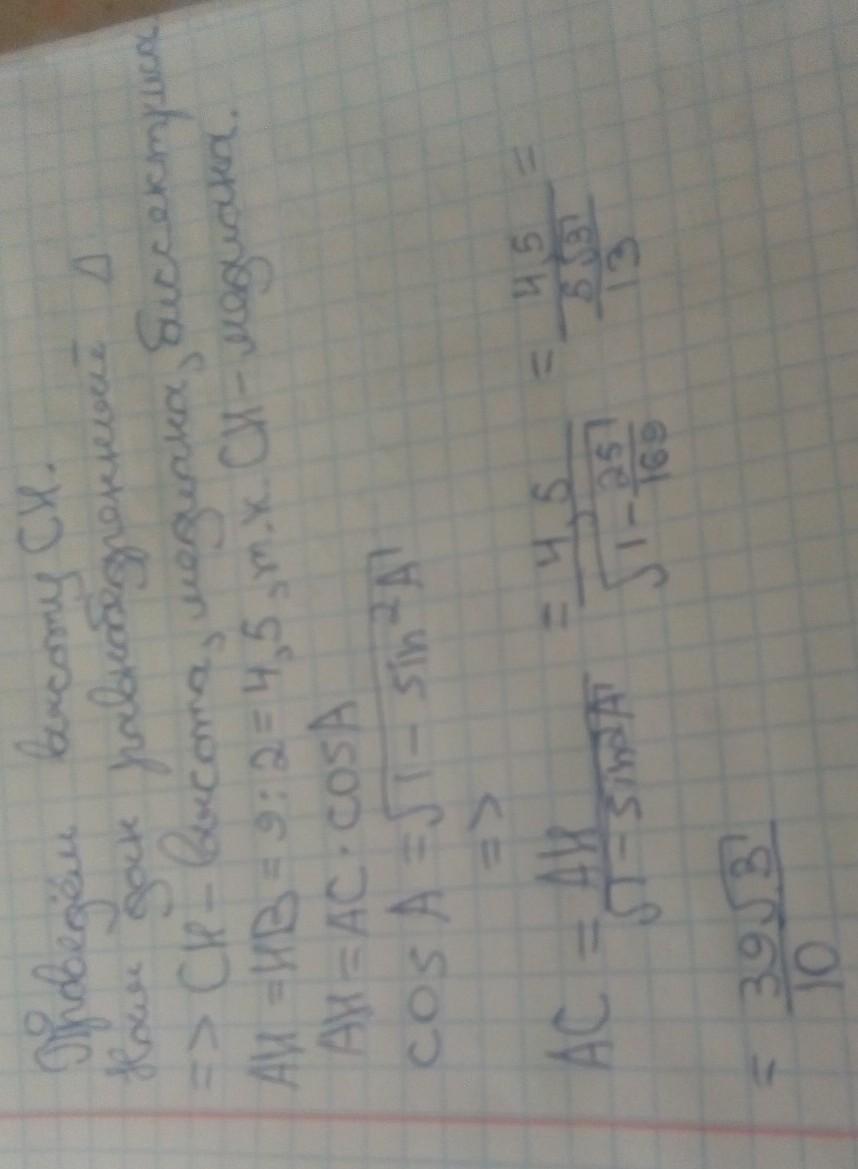 Проведём высоту CH.
Нам дан равнобедренный Δ
=> CH - высота, медиана, биссектриса.
AH = HB = 9:2 = 4,5, т.к. CH - медиана.
AH = AC · cosA
cos A = √1 - sin²A
=>
AC = AH/√1 - sin²A = 4,5/√1 - 25/169 = 4,5/(5√3/13) =
= 39√3/10